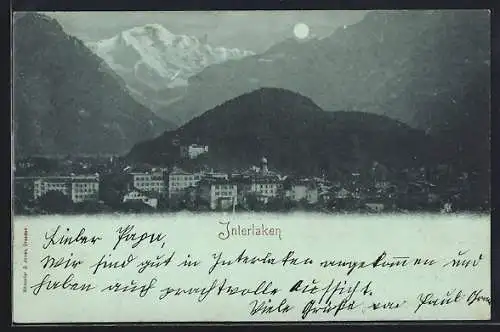 Interlaken
Lieber Papa,
Wir sind gut in Interlaken angekommen und
haben auch prachtvolle Aussicht.
Viele Grüße von Paul